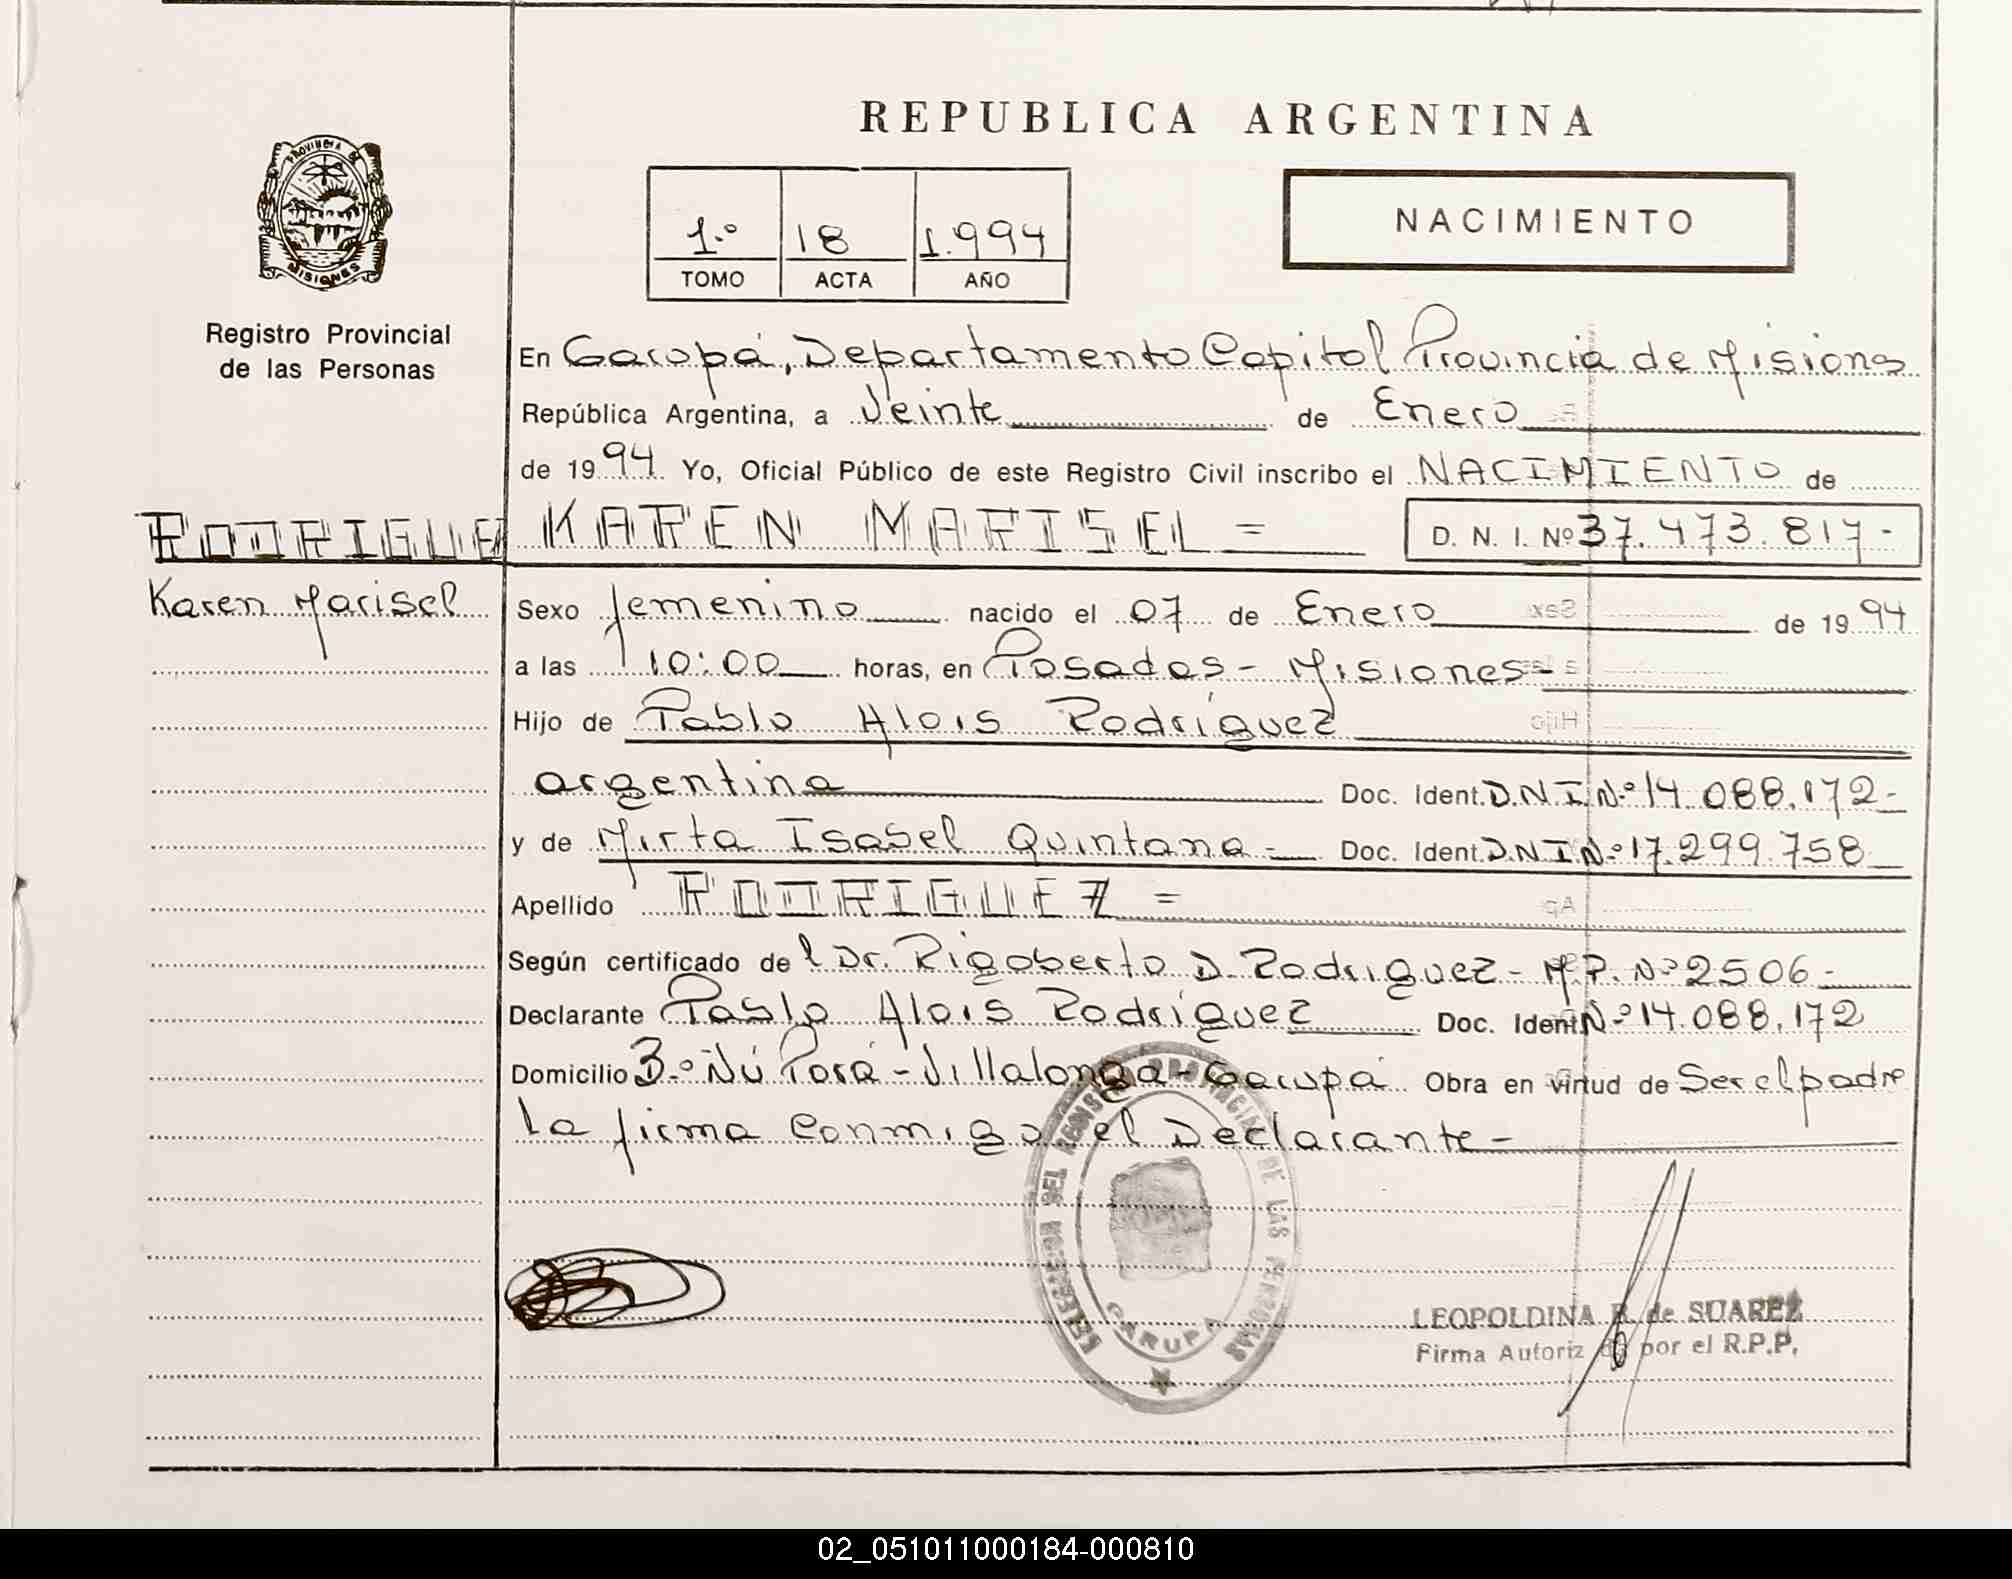 REPUBLICA ARGENTINA
PROVINCIA DE
MISIONES
1.º 18 1.994
TOMO ACTA AÑO
NACIMIENTO
Registro Provincial
de las Personas
RODRIGUEZ
Karen Marisel
En Garupá, Departamento Capital Provincia de Misiones
República Argentina, a Veinte de Enero
de 1994 Yo, Oficial Público de este Registro Civil inscribo el NACIMIENTO de
KAREN MARISEL = D. N. I. Nº 37.473.817-
Sexo femenino nacido el 07 de Enero de 1994
a las 10:00 horas, en Posadas - Misiones -
Hijo de Pablo Alois Rodríguez
argentina Doc. Ident. D.N.I.N.º 14.088.172-
y de Mirta Isabel Quintana - Doc. Ident. D.N.I.N.º 17.299.758
Apellido RODRIGUEZ =
Según certificado de l Dr. Rigoberto D. Rodriguez - M.P. Nº 2506 -
Declarante Pablo Alois Rodríguez Doc. Ident. N.º 14.088.172
Domicilio B.º Ñú Porá - Villalonga - Garupá Obra en virtud de Ser el padre
La firma Conmigo el Declarante -
DELEGACION DEL REGISTRO PROVINCIAL DE LAS PERSONAS
GARUPA
LEOPOLDINA R. de SUAREZ
Firma Autoriz por el R.P.P.
02_051011000184-000810